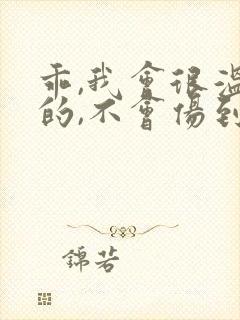 乖,我會很溫
的,不會傷到
錦若